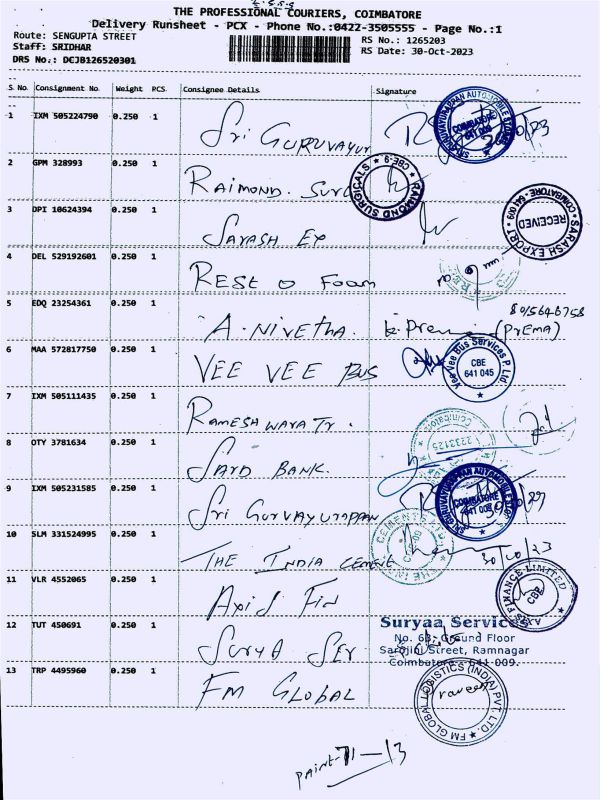 THE PROFESSIONAL COURIERS, COIMBATORE
Delivery Runsheet - PCX - Phone No.:0422-3505555 - Page No.:1
Route: SENGUPTA STREET
Staff: SRIDHAR
RS No.: 1265203
DRS No.: DCJB126520301
RS Date: 30-Oct-2023
S. No. Consignment No. Weight PCS. Consignee Details Signature
1 IXM 505224790 0.250 1 Sri GURUVAYUR
SRI GURUVAYURAPPAN AUTOMOBILE COIMBATORE 641 009
2 GPM 328993 0.250 1 RAIMOND. SURG
RAIMOND SURGICALS CBE-9
3 DPI 10624394 0.250 1 SARASH EX
SARASH EXPORT COIMBATORE - 641 009 RECEIVED
4 DEL 529192601 0.250 1 REST O FOAM
5 EDQ 23254361 0.250 1 A. NIVETHA. K. Prema (PREMA)
6 MAA 572817750 0.250 1 VEE VEE BUS
Vee Vee Bus Services P. Ltd CBE 641 045
7 IXM 505111435 0.250 1 RAMESHWARA Tr.
8 OTY 3781634 0.250 1 SARD BANK.
2233125
9 IXM 505231585 0.250 1 Sri GURVAYURAPPAN
SRI GURUVAYURAPPAN AUTOMOBILE COIMBATORE 641 009
10 SLM 331524995 0.250 1 THE INDIA CEMENT 30/10/23
THE IN CEMENTS LTD
11 VLR 4552065 0.250 1 AXIS FIN
AXIS FINANCE LIMITED CBE
12 TUT 450691 0.250 1 SURYA SER
Suryaa Services
No. 63, Ground Floor
Sarojini Street, Ramnagar
Coimbatore - 641 009.
13 TRP 4495960 0.250 1 FM GLOBAL
FM GLOBAL LOGISTICS (INDIA) PVT. LTD. Praveen